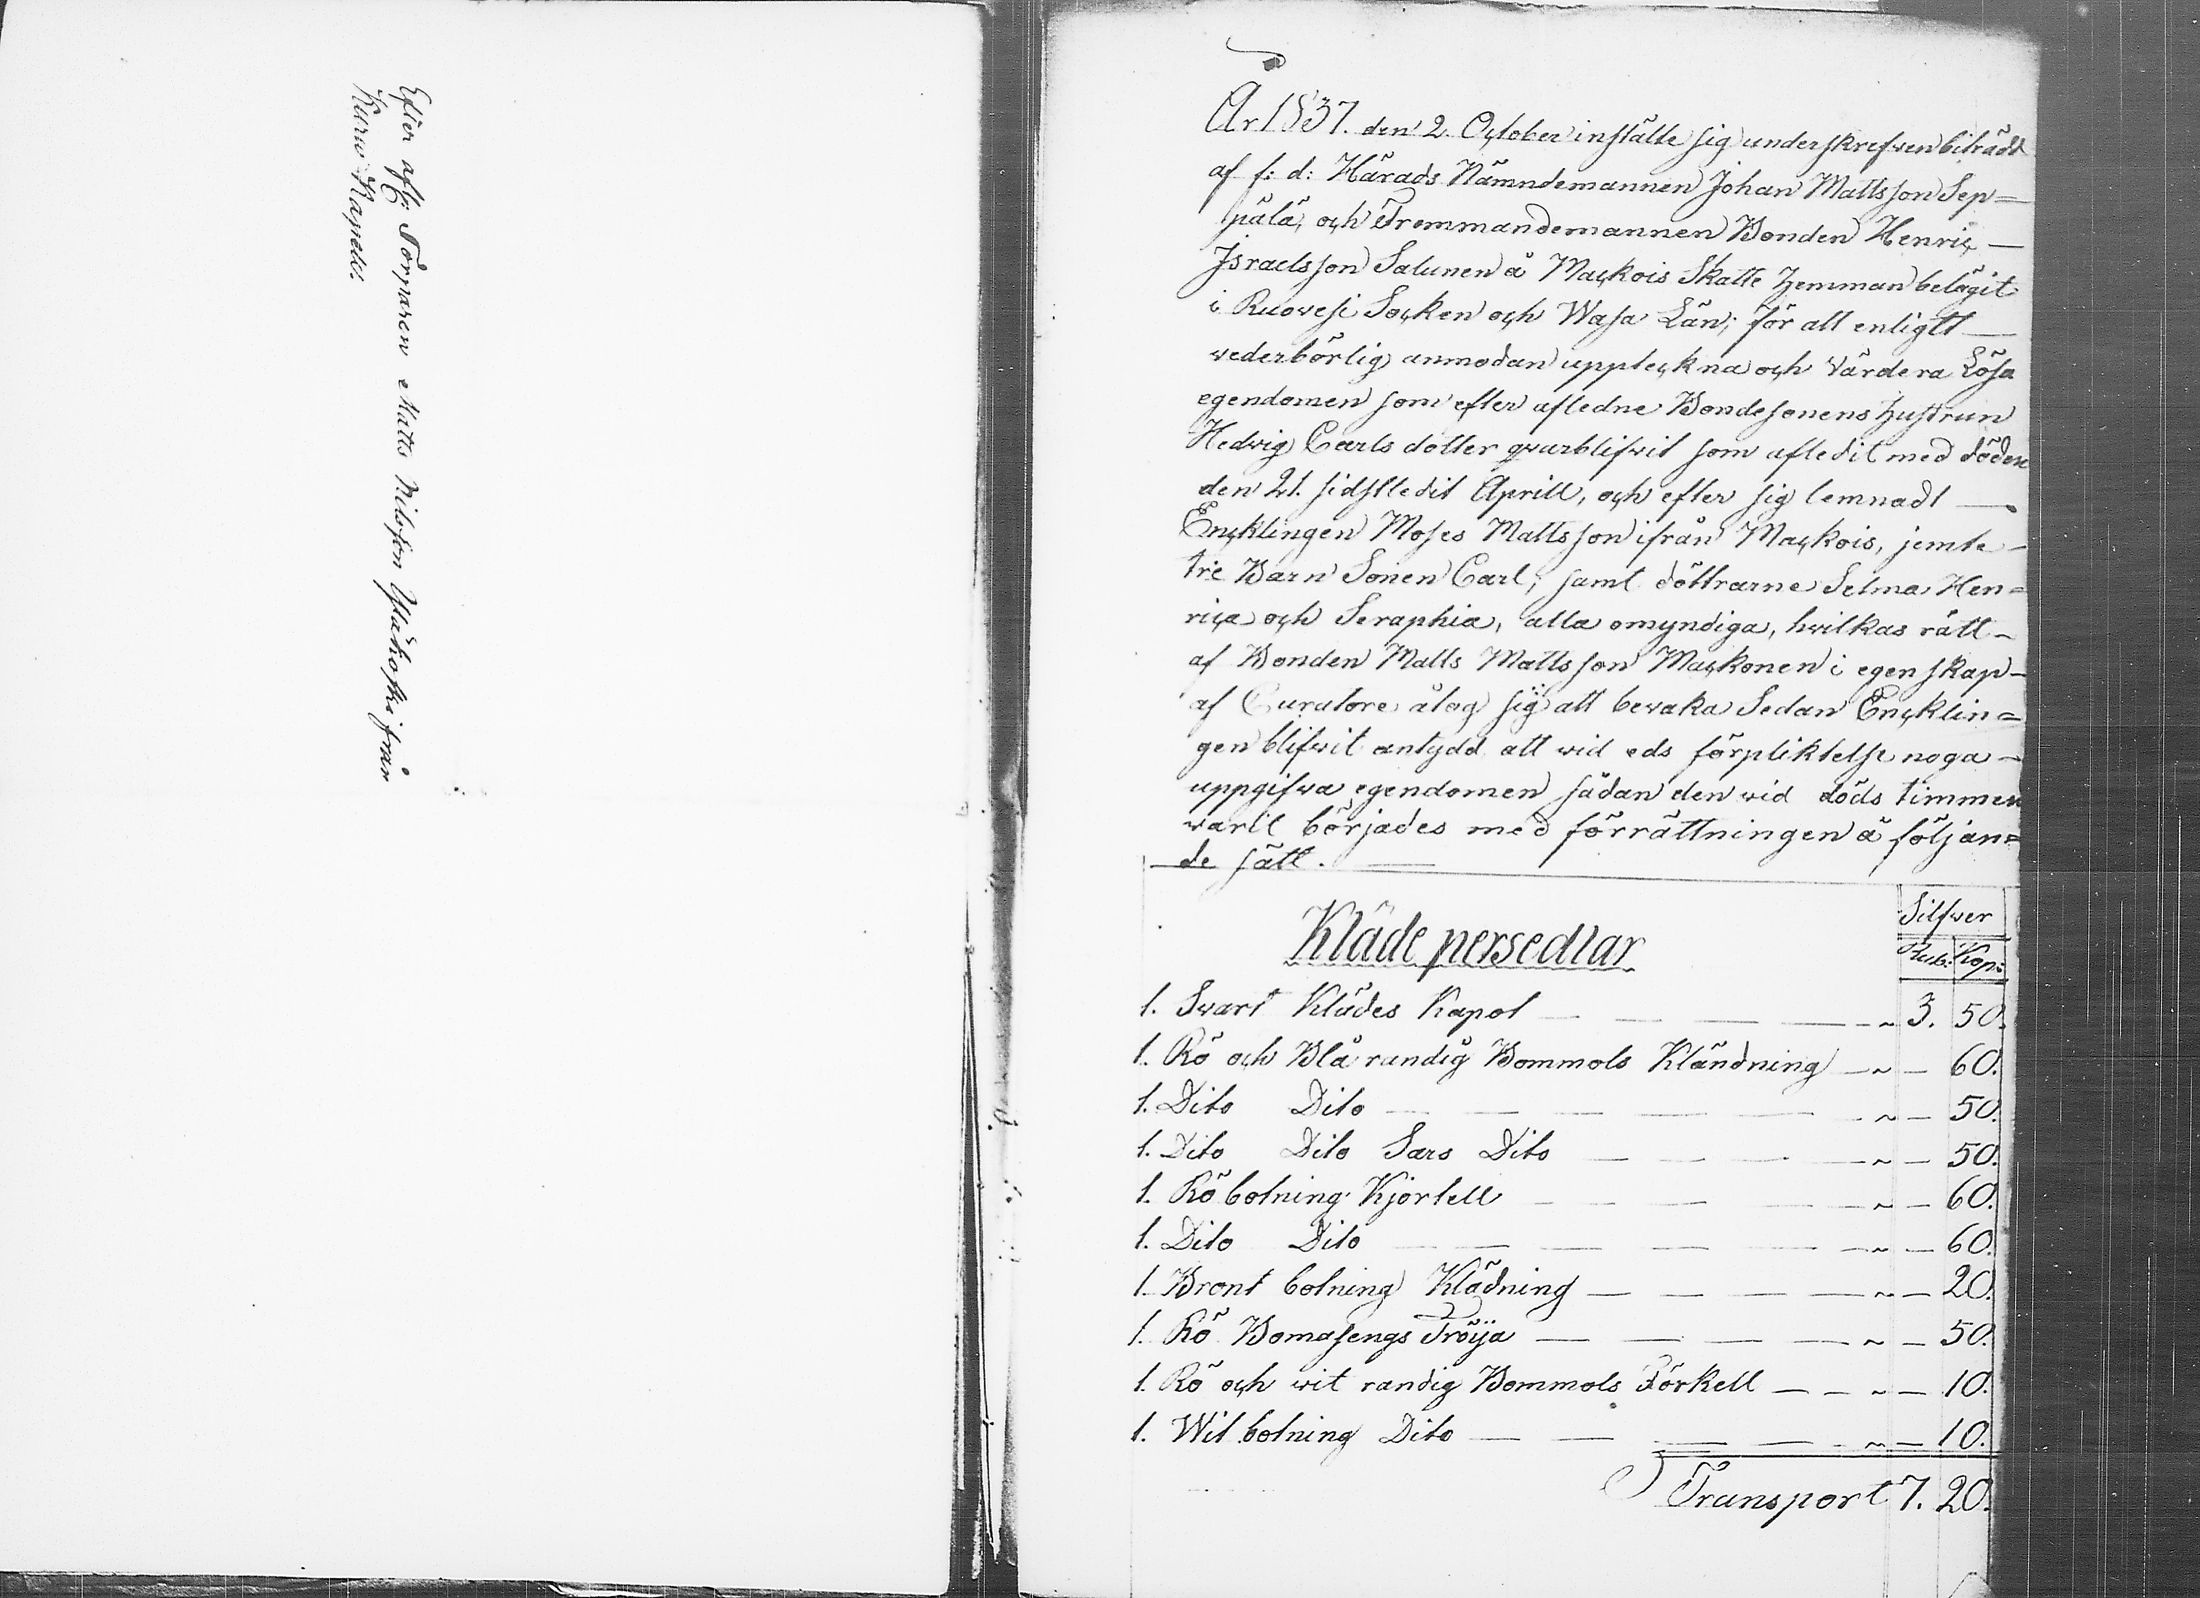 Efter afl: Torparen Matts Nilsson Yläkoski från
Kuru Kapell.
År 1837. den 2 October instälte sig underskrefwen biträdd
af f: d: Härads Nämndemannen Johan Mattsson Sep-
pälä, och Fremmandemannen Bonden Henric
Israelsson Salunen å Mackois Skatte hemman belägit
i Ruovesi Socken och Wasa Län; för att enligtt
vederbörlig anmodan uppteckna och Värdera Lösa
egendomen som efter afledne Bondesonens hustrun
Hedwig Carls dotter qvarblifvit som afledit med döden
den 21. sidstledit Aprill, och efter sig lemnadt
Encklingen Moses Mattsson ifrån Mackois, jemte
tre Barn Sonen Carl, samt döttrarne Selma Hen=
rica och Seraphia, alla omyndiga, hvilkas rätt
af Bonden Matts Mattsson Mackonen i egenskap
af Curatore åtog sig att bevaka Sedan Encklin=
gen blifvit antydd att vid eds förpliktelse noga
uppgifva egendomen sådan den vid döds timmen
varit börjades med förrättningen å följan=
de sätt.
Silfver
Kläde persedlar
Rub: Kop:
1. Svart Klädes Kapot 3. 50.
1. Rö och Blå randig Bommols Kländning 60.
1. Dito Dito 50.
1. Dito Dito Sars Dito 50.
1. Rö botning Kjortell 60.
1. Dito Dito 60.
1. Bront botning Klädning 20.
1. Rö Bomasengs Tröija 50.
1. Rö och wit randig Bommols Förkell 10.
1. Wit botning Dito 10.
Transport 7. 20.